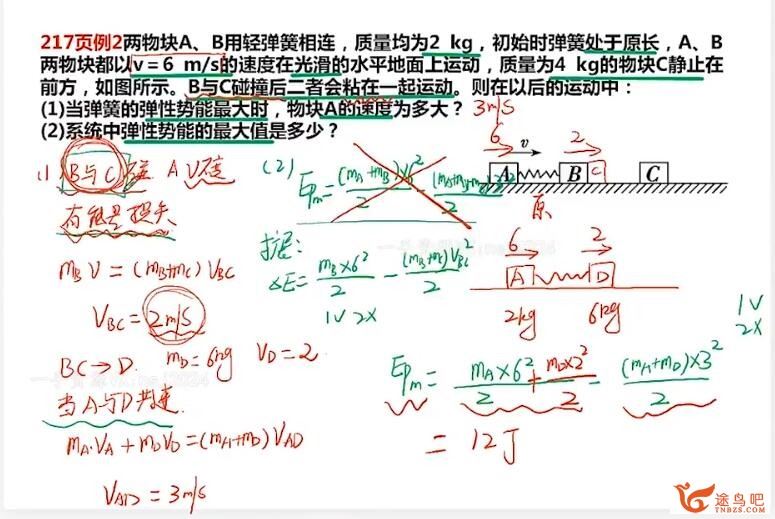 217页例2两物块A、B用轻弹簧相连，质量均为2 kg，初始时弹簧处于原长，A、B
两物块都以v＝6 m/s的速度在光滑的水平地面上运动，质量为4 kg的物块C静止在
前方，如图所示。B与C碰撞后二者会粘在一起运动。则在以后的运动中：
(1)当弹簧的弹性势能最大时，物块A的速度为多大？ 3m/s
(2)系统中弹性势能的最大值是多少？
6 v 2
A B C C
原
(1) B与C碰 A V
有能量损失
mB V = (mB+mC) VBC
VBC = 2m/s
BC→D. mD=6kg VD=2
当A与D共速
mA·VA + mDVD = (mA+mD) VAD
VAD = 3m/s
(2)
Epm = (mA+mB)×6²/2 -
扩展:
ΔE = mB×6²/2 - (mB+mC)VBC²/2
1V 2X
6 2
A D
2kg 6kg
1V
2X
Epm = mA×6²/2 + mD×2²/2 - (mA+mD)×3²/2
= 12J
途鸟吧
TNBZS.COM